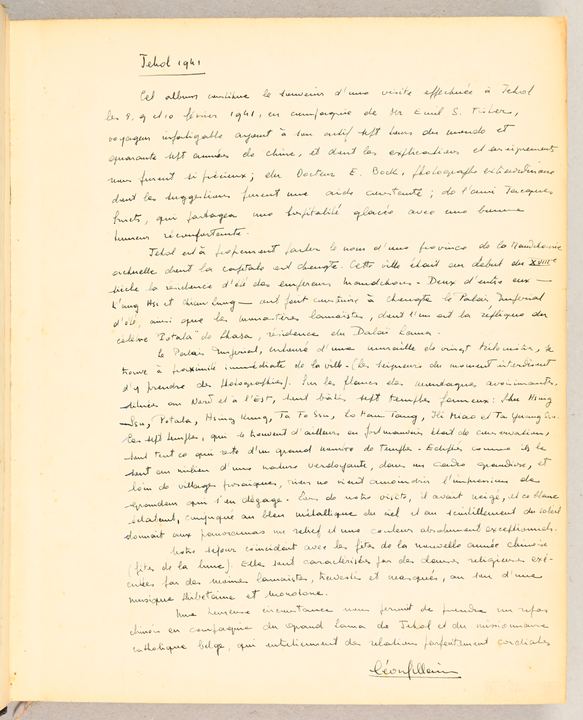 Jehol 1941
Cet album constitue le souvenir d'une visite effectuée à Jehol
les 8, 9 et 10 février 1941, en compagnie de Mr Emil S. Fisher,
voyageur infatigable ayant à son actif sept tours du monde et
quarante sept années de Chine, et dont les explications et enseignements
nous furent si précieux; du Docteur E. Bock, photographe extraordinaire
dont les suggestions furent une aide constante; de l'ami Jacques
qui partagea une hospitalité glacée avec une bonne
humeur réconfortante.
Jehol est à proprement parler le nom d'une province de la Mandchourie
actuelle dont la capitale est Chengte. Cette ville était au début du XVIIIe
siècle la résidence d'été des empereurs mandchous. Deux d'entre eux —
K'ang Hsi et Chien Lung — ont fait construire à Chengte le Palais Impérial
d'été, ainsi que les monastères lamaistes, dont l'un est la réplique du
célèbre "Potala" de Lhasa, résidence du Dalai Lama.
Le Palais Impérial, entouré d'une muraille de vingt kilomètres, se
trouve à proximité immédiate de la ville. (les seigneurs du moment interdisent
d'y prendre des photographies). Sur les flancs des montagnes avoisinantes,
situées au Nord et à l'Est, sont bâtis sept temples fameux: Shu Hsiang
Ssu, Potala, Hsing Kung, Ta Fo Ssu, Lo Han Tang, Hei Miao et Ta Yuang
Ces sept temples, qui se trouvent d'ailleurs en fort mauvais état de conservation,
sont tout ce qui reste d'un grand nombre de temples. Edifiés comme ils le
sont au milieu d'une nature verdoyante, dans un cadre grandiose, et
loin de villages prosaiques, rien ne vient amoindrir l'impression de
grandeur qui s'en dégage. Lors de notre visite, il avait neigé, et ce blanc
éclatant, conjugué au bleu métallique du ciel et au scintillement du soleil
donnait aux panoramas un relief et une couleur absolument exceptionnels.
Notre séjour coincidait avec les fêtes de la nouvelle année chinoise
(fêtes de la lune). Elles sont caractérisées par des danses religieuses exé-
cutées par des moines lamaistes, travestis et masqués, au son d'une
musique thibétaine et monotone.
Une heureuse circonstance nous permit de prendre un repas
chinois en compagnie du Grand Lama de Jehol et du missionnaire
catholique belge, qui entretiennent des relations parfaitement cordiales